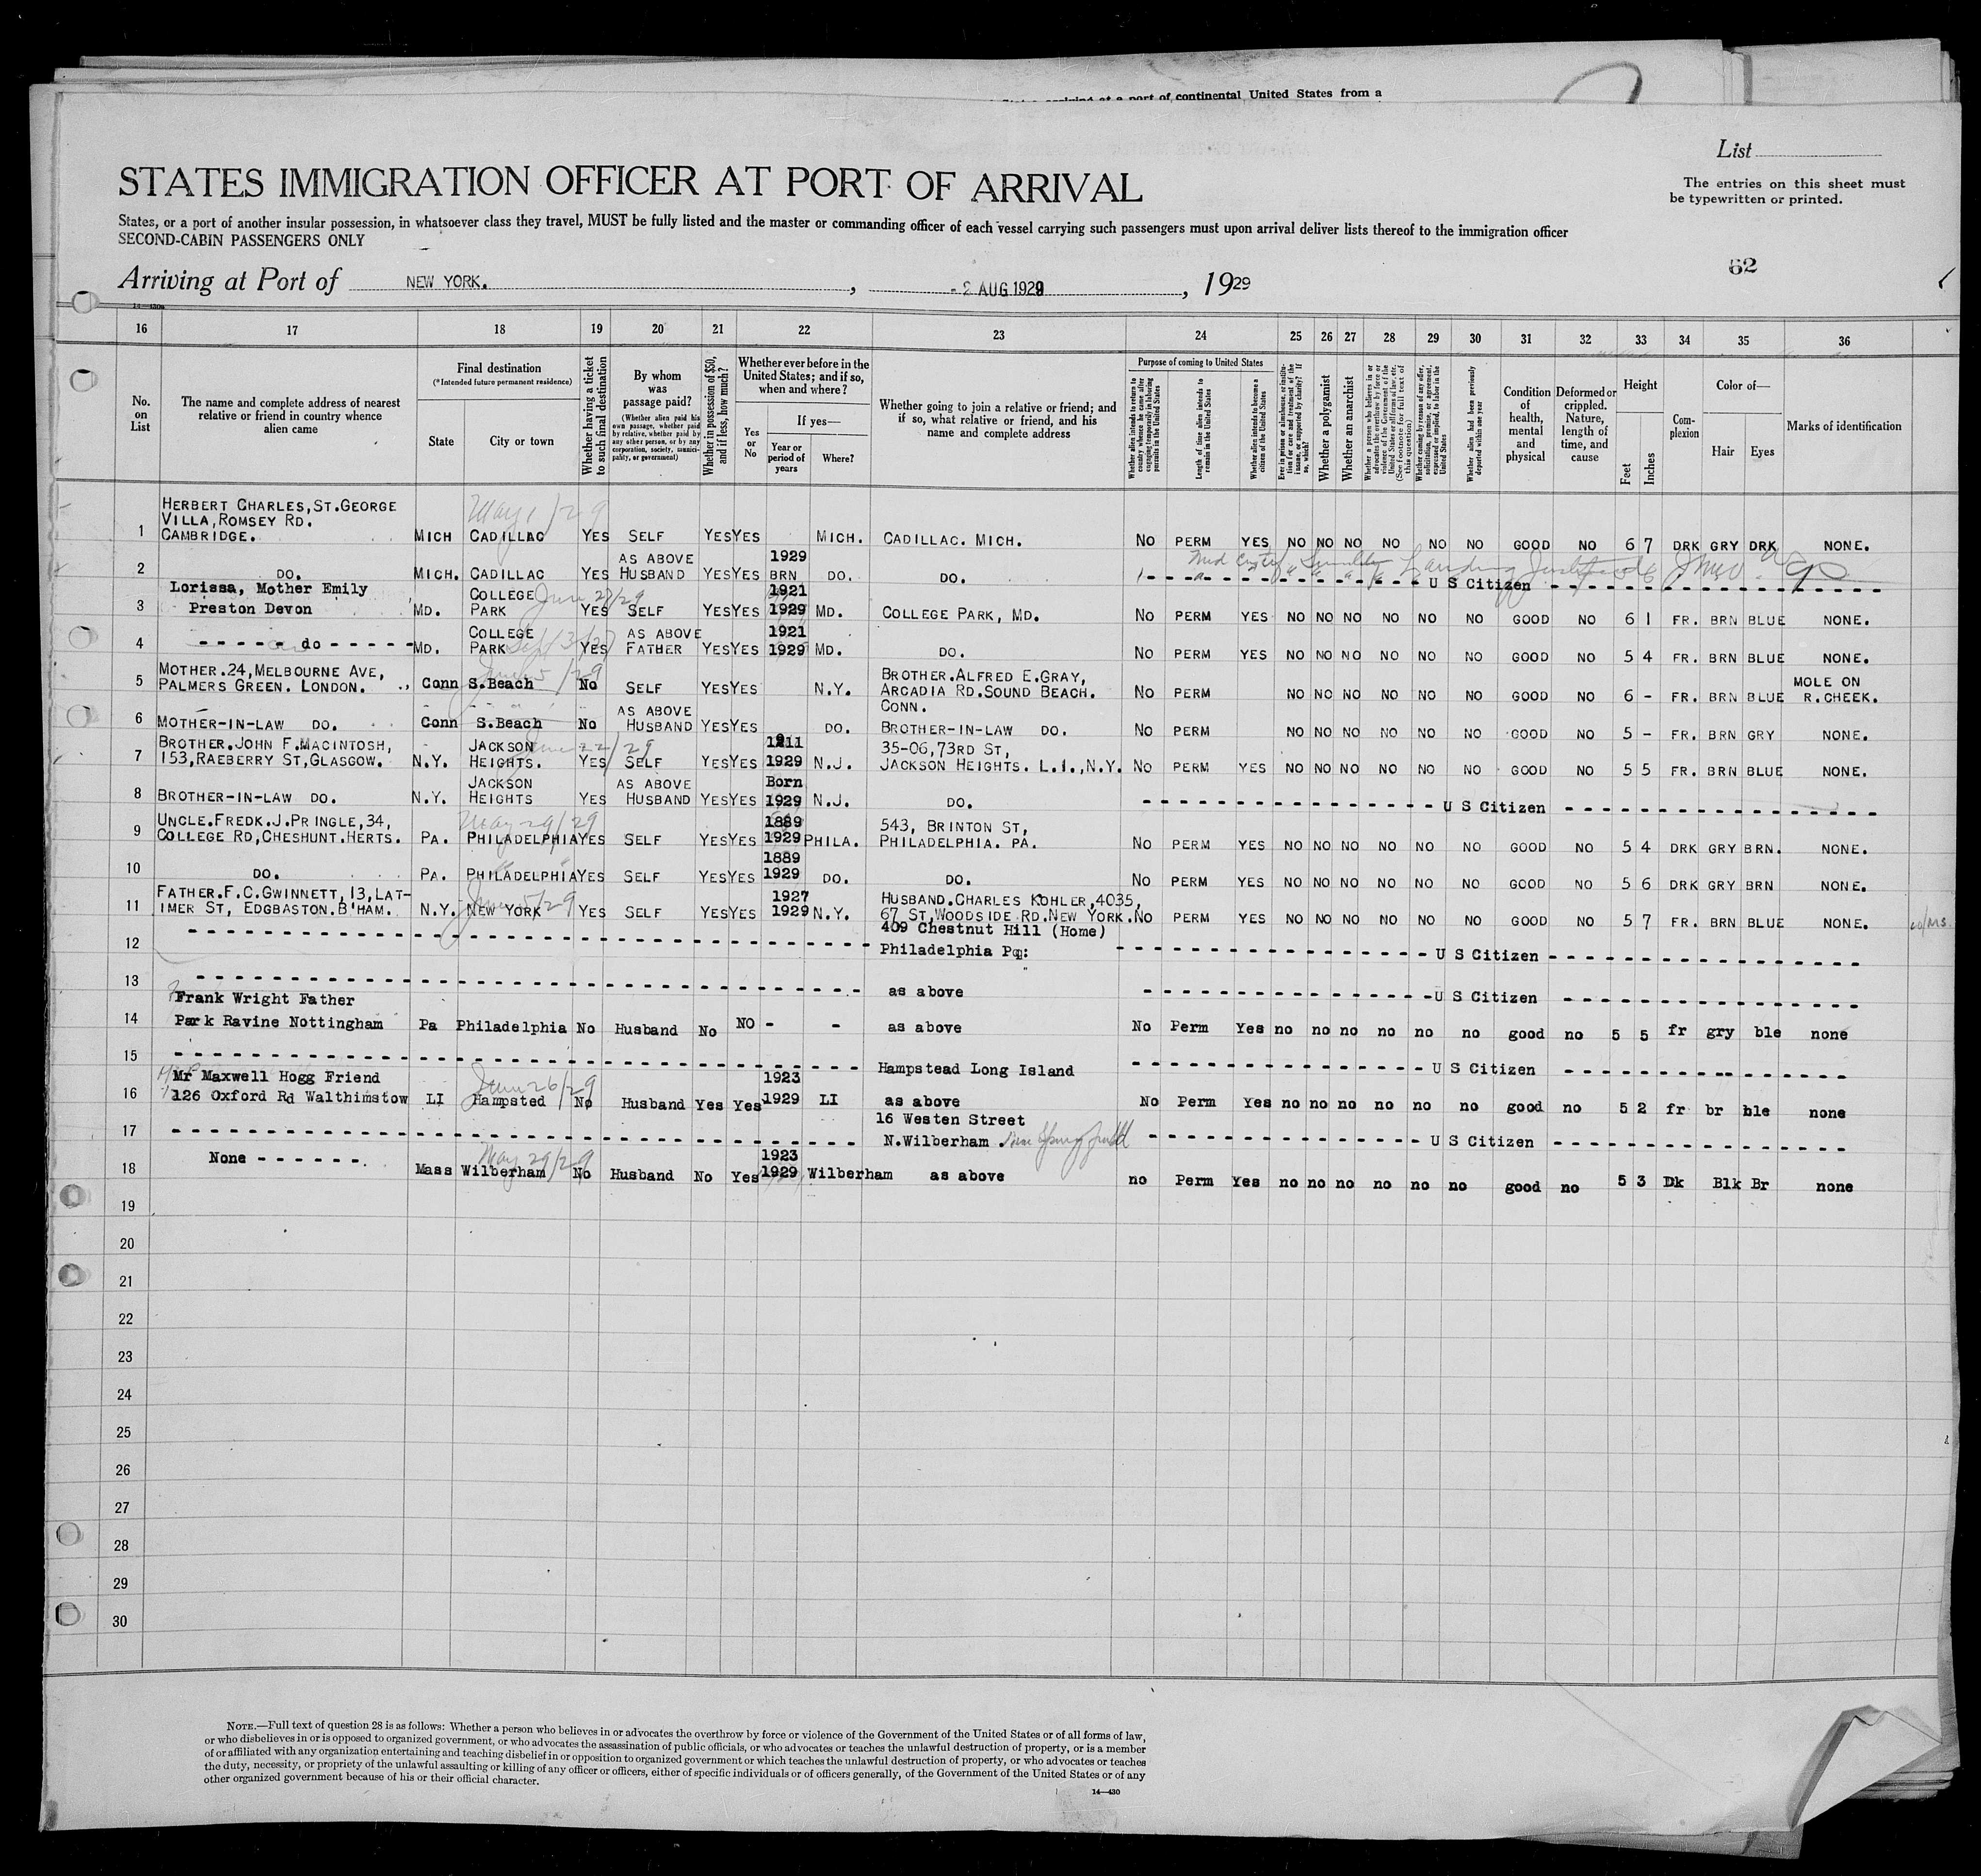 States arriving at a port of continental United States from a
List
STATES IMMIGRATION OFFICER AT PORT OF ARRIVAL
The entries on this sheet must
be typewritten or printed.
States, or a port of another insular possession, in whatsoever class they travel, MUST be fully listed and the master or commanding officer of each vessel carrying such passengers must upon arrival deliver lists thereof to the immigration officer
SECOND-CABIN PASSENGERS ONLY
62
Arriving at Port of NEW YORK. , - 2 AUG 1929 , 1929
14—430a
16 17 18 19 20 21 22 23 24 25 26 27 28 29 30 31 32 33 34 35 36
No. on List
The name and complete address of nearest relative or friend in country whence alien came
Final destination
(*Intended future permanent residence)
State
City or town
Whether having a ticket to such final destination
By whom was passage paid?
(Whether alien paid his own passage, whether paid by relative, whether paid by any other person, or by any corporation, society, municipality, or government)
Whether in possession of $50, and if less, how much?
Whether ever before in the United States; and if so, when and where?
Yes or No
If yes—
Year or period of years
Where?
Whether going to join a relative or friend; and if so, what relative or friend, and his name and complete address
Purpose of coming to United States
Whether alien intends to return to country whence he came after engaging temporarily in laboring pursuits in the United States
Length of time alien intends to remain in the United States
Whether alien intends to become a citizen of the United States
Ever in prison or almshouse, or institution for care and treatment of the insane, or supported by charity? If so, which?
Whether a polygamist
Whether an anarchist
Whether a person who believes in or advocates the overthrow by force or violence of the Government of the United States or all forms of law, etc. (See footnote for full text of this question)
Whether coming by reason of any offer, solicitation, promise, or agreement, expressed or implied, to labor in the United States
Whether alien had been previously deported within one year
Condition of health, mental and physical
Deformed or crippled. Nature, length of time, and cause
Height
Feet
Inches
Complexion
Color of—
Hair
Eyes
Marks of identification
May 1/29
HERBERT CHARLES, ST.GEORGE
VILLA, ROMSEY RD.
1 CAMBRIDGE. MICH CADILLAC YES SELF YES YES MICH. CADILLAC. MICH. NO PERM YES NO NO NO NO NO NO GOOD NO 6 7 DRK GRY DRK NONE.
AS ABOVE 1929
2 DO. MICH. CADILLAC YES HUSBAND YES YES BRN DO. DO. - - - - U S Citizen - - - -
Lorissa, Mother Emily COLLEGE June 27/29 1921
3 Preston Devon Md. PARK YES SELF YES YES 1929 Md. COLLEGE PARK, MD. NO PERM YES NO NO NO NO NO NO GOOD NO 6 1 FR. BRN BLUE NONE.
COLLEGE AS ABOVE 1921
4 - - - - - do - - - - - Md. PARK YES FATHER YES YES 1929 Md. DO. NO PERM YES NO NO NO NO NO NO GOOD NO 5 4 FR. BRN BLUE NONE.
MOTHER.24,MELBOURNE AVE, BROTHER.ALFRED E.GRAY, MOLE ON
5 PALMERS GREEN. LONDON. Conn S.Beach No SELF YES YES N.Y. ARCADIA RD.SOUND BEACH. NO PERM NO NO NO NO NO NO GOOD NO 6 - FR. BRN BLUE R.CHEEK.
CONN.
AS ABOVE
6 MOTHER-IN-LAW DO. Conn S.Beach No HUSBAND YES YES DO. BROTHER-IN-LAW DO. NO PERM NO NO NO NO NO NO GOOD NO 5 - FR. BRN GRY NONE.
BROTHER.JOHN F.MACINTOSH, JACKSON June 22/29 35-06,73RD ST,
7 153,RAEBERRY ST,GLASGOW. N.Y. HEIGHTS. YES SELF YES YES 1929 N.J. JACKSON HEIGHTS. L.I.,N.Y. NO PERM YES NO NO NO NO NO NO GOOD NO 5 5 FR. BRN BLUE NONE.
JACKSON AS ABOVE Born
8 BROTHER-IN-LAW DO. N.Y. HEIGHTS YES HUSBAND YES YES 1929 N.J. DO. - - - - U S Citizen - - - -
UNCLE.FREDK.J.PRINGLE,34, May 29/29 1889 543, BRINTON ST,
9 COLLEGE RD,CHESHUNT.HERTS. PA. PHILADELPHIA YES SELF YES YES 1929 PHILA. PHILADELPHIA. PA. NO PERM YES NO NO NO NO NO NO GOOD NO 5 4 DRK GRY BRN. NONE.
1889
10 DO. PA. PHILADELPHIA YES SELF YES YES 1929 DO. DO. NO PERM YES NO NO NO NO NO NO GOOD NO 5 6 DRK GRY BRN NONE.
FATHER.F.C.GWINNETT,13,LAT- 1927 HUSBAND.CHARLES KOHLER,4035,
11 IMER ST, EDGBASTON.B'HAM. N.Y. NEW YORK YES SELF YES YES 1929 N.Y. 67 ST,WOODSIDE RD.NEW YORK. NO PERM YES NO NO NO NO NO NO GOOD NO 5 7 FR. BRN BLUE NONE.
409 Chestnut Hill (Home)
12 - - - - Philadelphia Pa: - - - - U S Citizen - - - -
13 - - - - as above - - - - U S Citizen - - - -
Frank Wright Father
14 Park Ravine Nottingham Pa Philadelphia No Husband No NO - - as above No Perm Yes no no no no no no good no 5 5 fr gry ble none
15 - - - - Hampstead Long Island - - - - U S Citizen - - - -
Mr Maxwell Hogg Friend June 26/29 1923
16 126 Oxford Rd Walthimstow LI Hampsted No Husband Yes Yes 1929 LI as above No Perm Yes no no no no no no good no 5 2 fr br ble none
16 Westen Street
17 - - - - N.Wilberham - - - - U S Citizen - - - -
None - - - - - - . May 29/29 1923
18 Mass Wilberham No Husband No Yes 1929 Wilberham as above no Perm Yes no no no no no no good no 5 3 Dk Blk Br none
19
20
21
22
23
24
25
26
27
28
29
30
NOTE.—Full text of question 28 is as follows: Whether a person who believes in or advocates the overthrow by force or violence of the Government of the United States or of all forms of law,
or who disbelieves in or is opposed to organized government, or who advocates the assassination of public officials, or who advocates or teaches the unlawful destruction of property, or is a member
of or affiliated with any organization entertaining and teaching disbelief in or opposition to organized government or which teaches the unlawful destruction of property, or who advocates or teaches
the duty, necessity, or propriety of the unlawful assaulting or killing of any officer or officers, either of specific individuals or of officers generally, of the Government of the United States or of any
other organized government because of his or their official character.
14—430